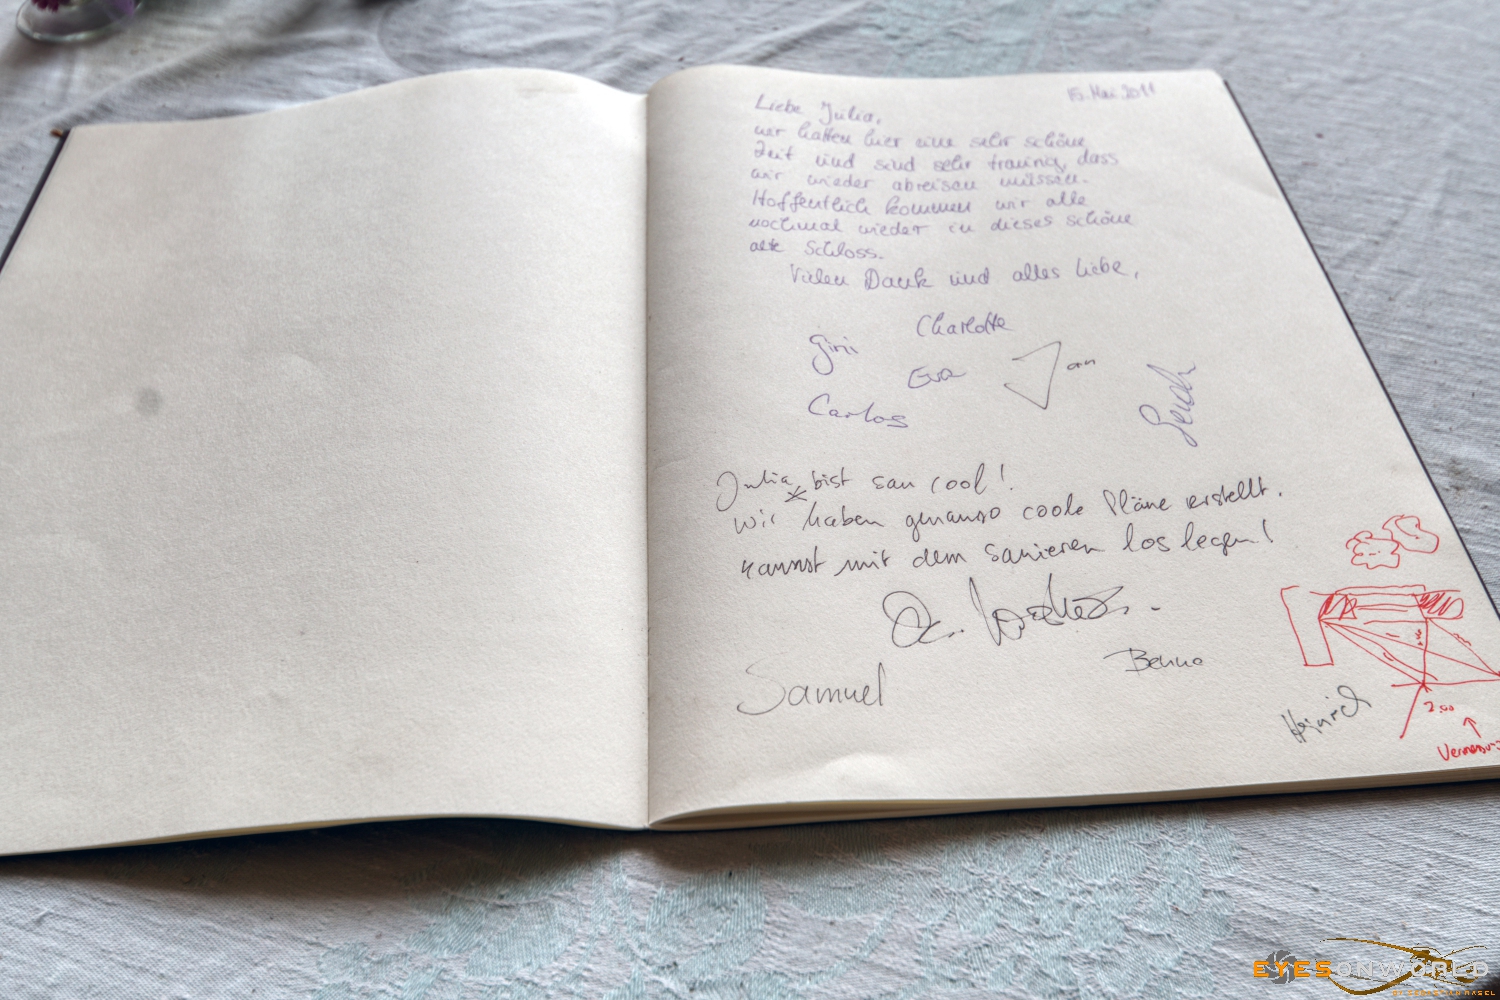 15. Mai 2011
Liebe Julia,
wir hatten hier eine sehr schöne
Zeit und sind sehr traurig, dass
wir wieder abreisen müssen.
Hoffentlich kommen wir alle
nochmal wieder in dieses schöne
alte Schloss.
Vielen Dank und alles Liebe,
Charlotte
Gini
Eva
Carlos
Julia, bist sau cool!
Wir haben genauso coole Pläne erstellt.
Kannst mit dem Sanieren los legen!
Benno
Samuel
Heinrich
2.00
EYES ON WORLD